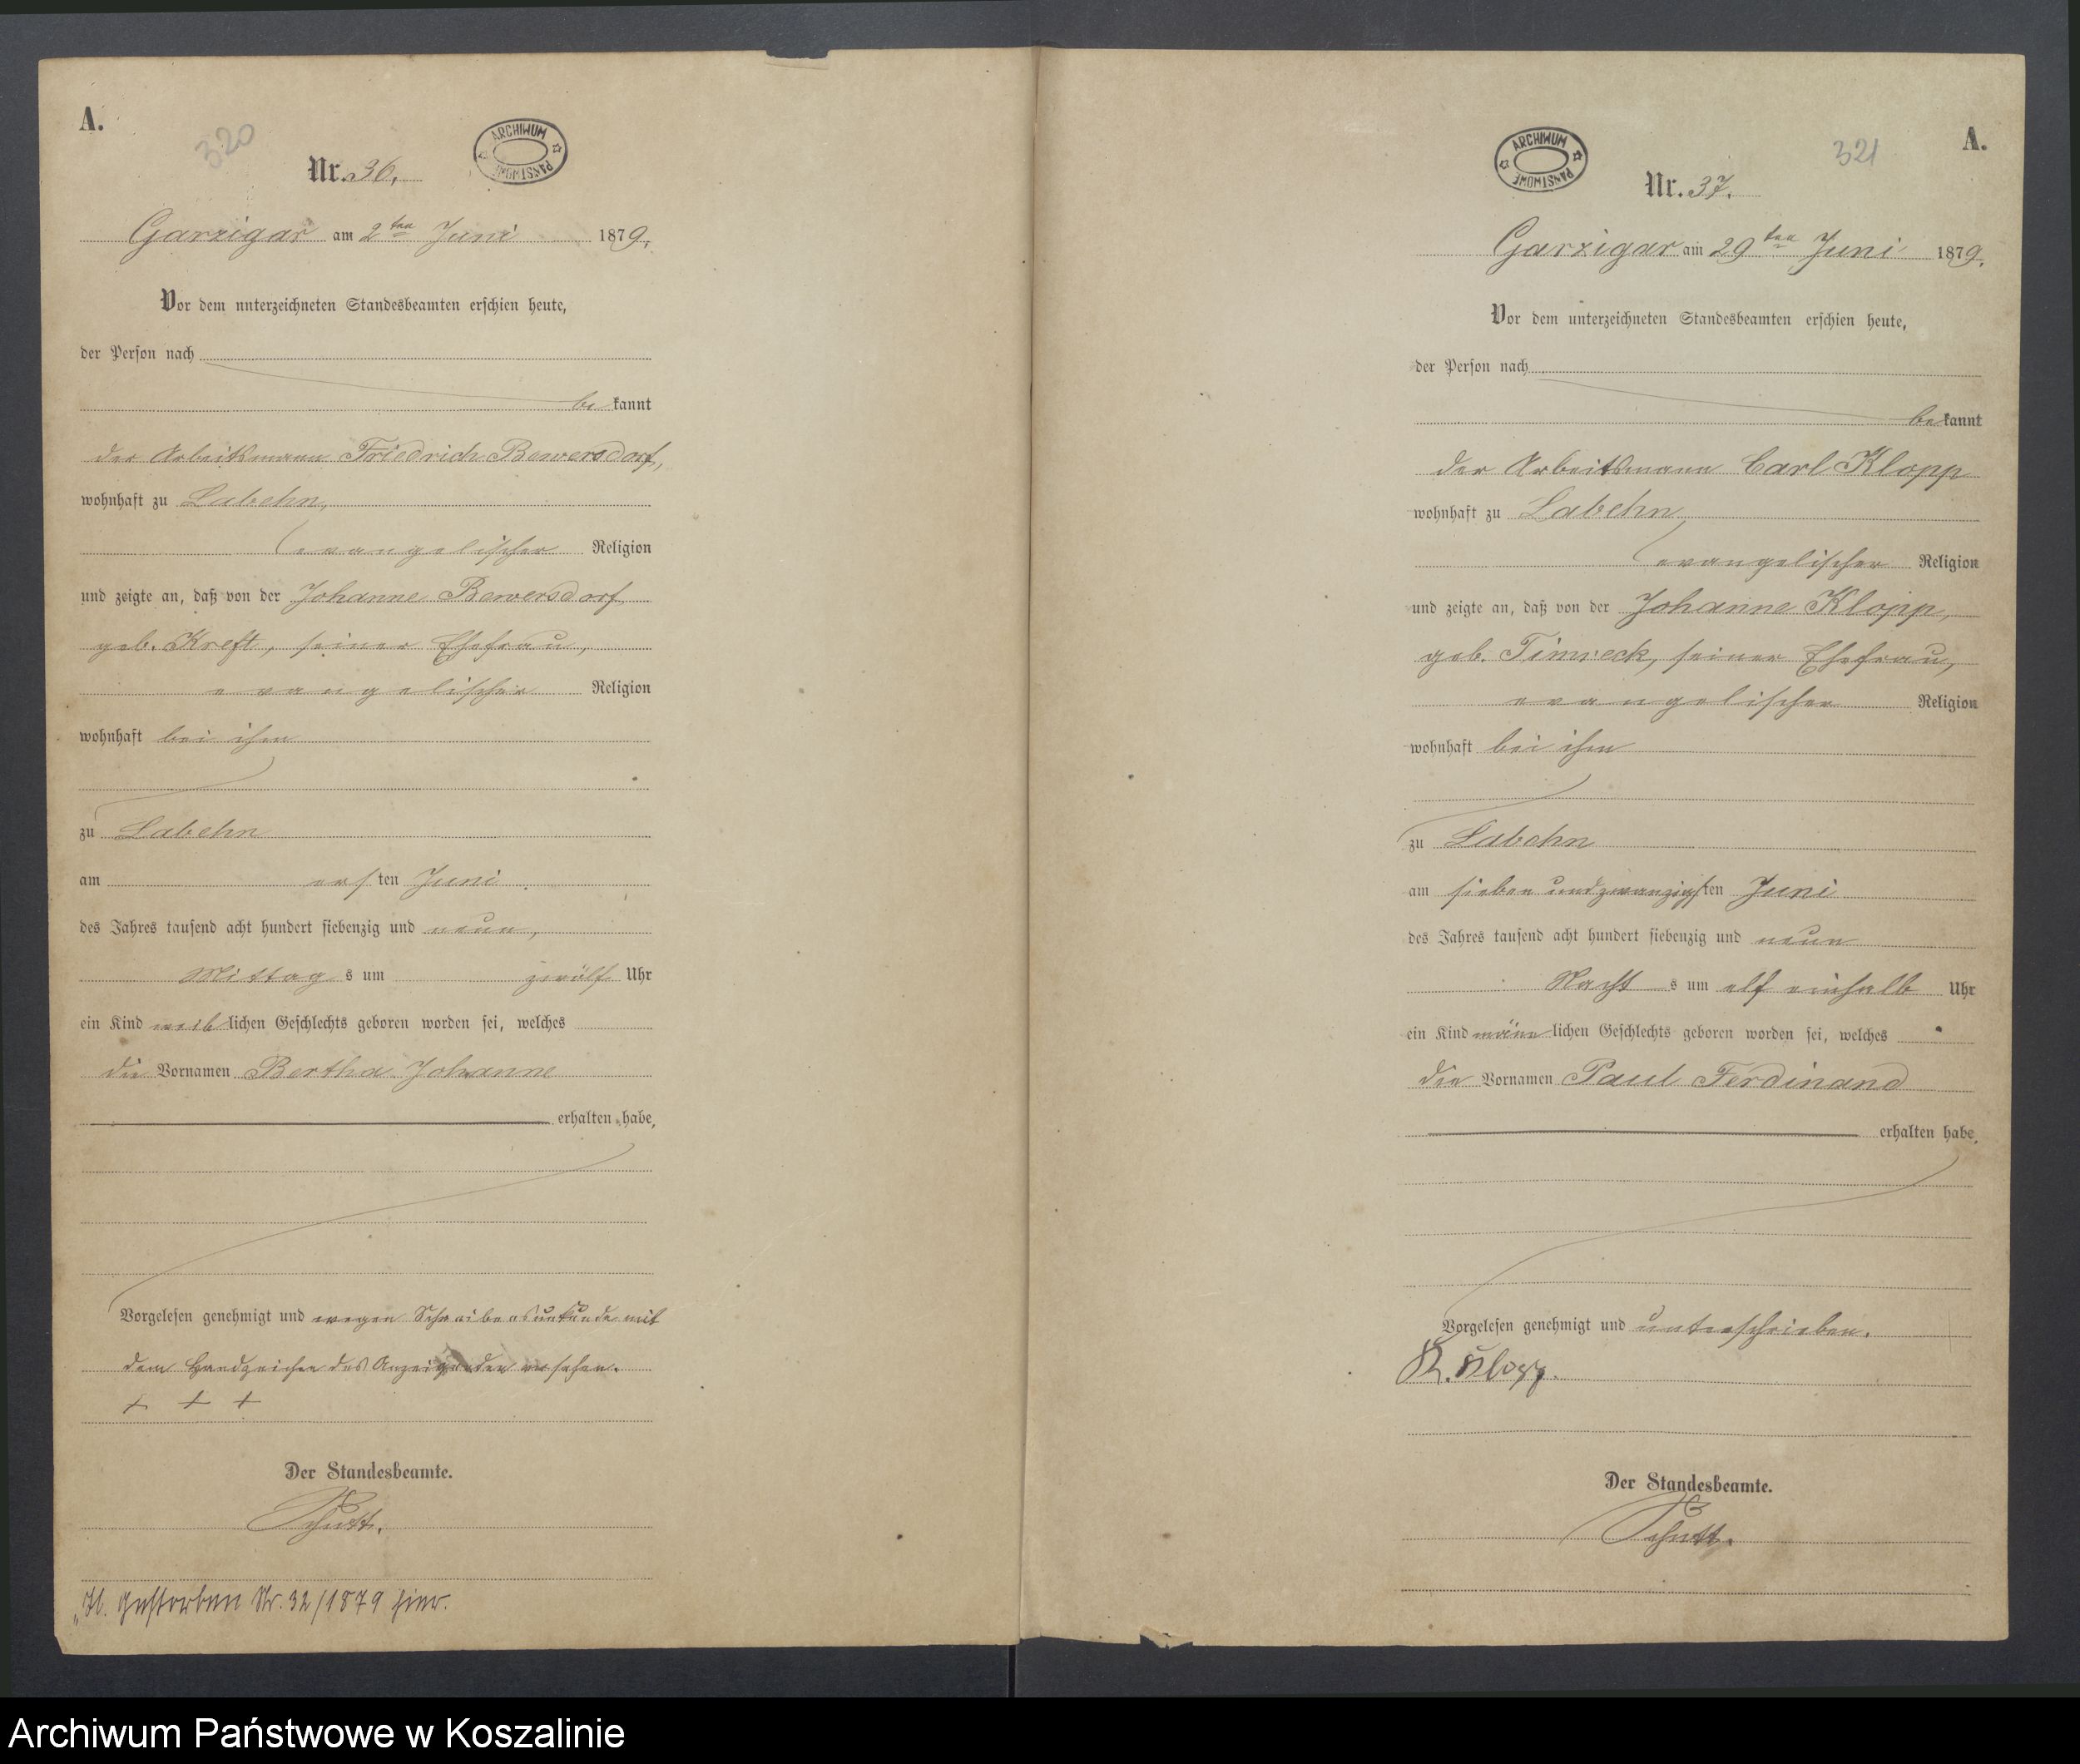 A.
320
Nr. 36.
ARCHIWUM PAŃSTWOWE
Garzigar am 2ten Juni 1879.
Vor dem unterzeichneten Standesbeamten erschien heute,
der Person nach
bekannt
der Arbeitsmann Friedrich Bewersdorf,
wohnhaft zu Labehn,
evangelischer Religion
und zeigte an, daß von der Johanne Bewersdorf
geb. Kreft, seiner Ehefrau,
evangelischer Religion
wohnhaft bei ihm
zu Labehn
am ersten Juni
des Jahres tausend acht hundert siebenzig und neun,
Mittags um zwölf Uhr
ein Kind weiblichen Geschlechts geboren worden sei, welches
die Vornamen Bertha Johanne
erhalten habe,
Vorgelesen genehmigt und wegen Schreibensunkunde mit
dem Handzeichen des Anzeigenden versehen.
+ + +
Der Standesbeamte.
Schutt.
gestorben Nr. 32/1879 hier.
A.
321
ARCHIWUM PAŃSTWOWE
Nr. 37.
Garzigar am 29ten Juni 1879.
Vor dem unterzeichneten Standesbeamten erschien heute,
der Person nach
bekannt
der Arbeitsmann Carl Klopp
wohnhaft zu Labehn
evangelischer Religion
und zeigte an, daß von der Johanne Klopp,
geb. Timreck, seiner Ehefrau,
evangelischer Religion
wohnhaft bei ihm
zu Labehn
am sieben und zwanzigsten Juni
des Jahres tausend acht hundert siebenzig und neun
Nachts um elf einhalb Uhr
ein Kind männlichen Geschlechts geboren worden sei, welches
die Vornamen Paul Ferdinand
erhalten habe.
Vorgelesen genehmigt und unterschrieben.
K. Klopp.
Der Standesbeamte.
Schutt.
Archiwum Państwowe w Koszalinie